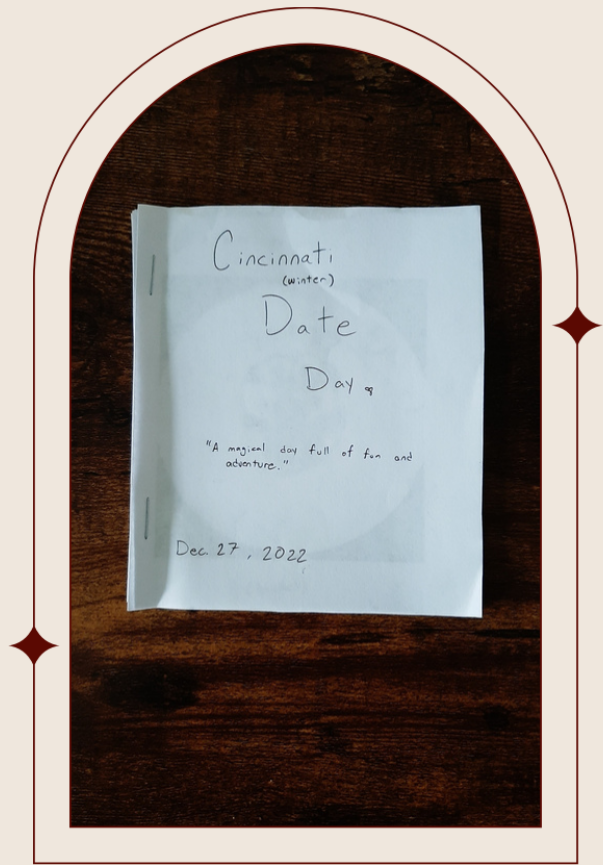 Cincinnati
(winter)
Date
Day
"A magical day full of fun and
adventure."
Dec. 27, 2022